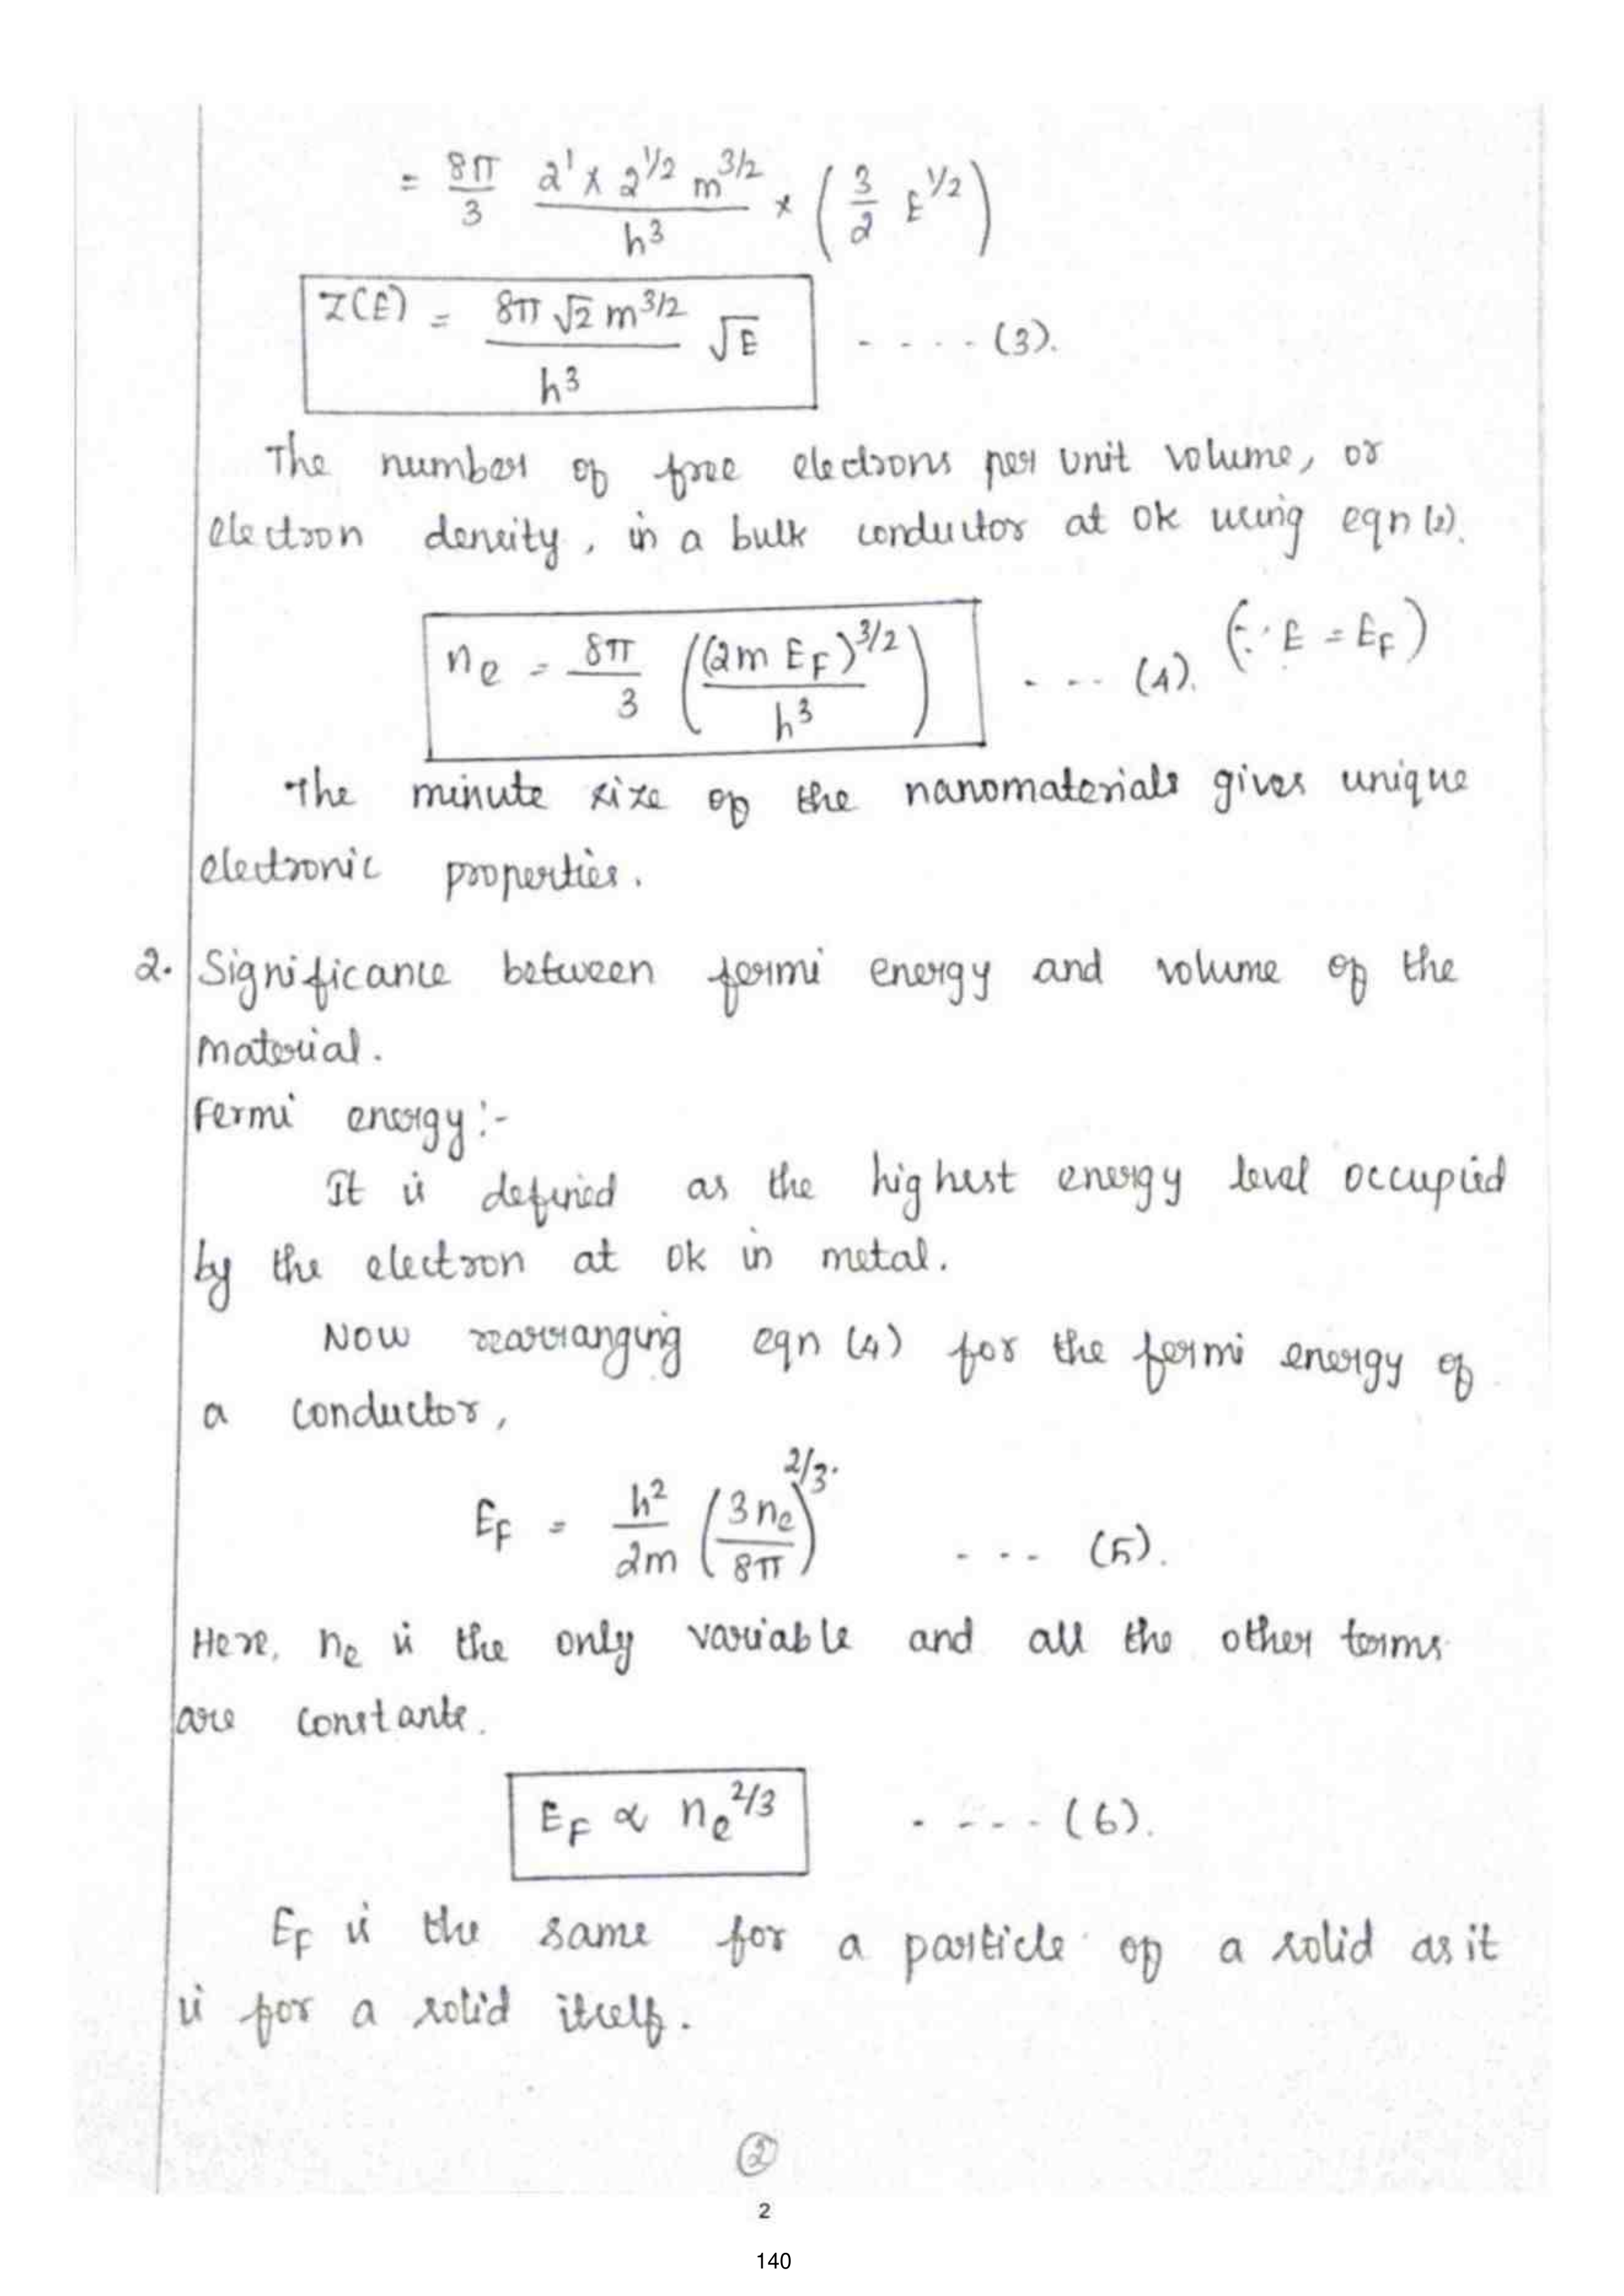 = 8π/3 (2¹ × 2^1/2 m^3/2)/h³ × (3/2 E^1/2)
Z(E) = (8π √2 m^3/2)/h³ √E - - - - (3).
The number of free electrons per unit volume, or
electron density, in a bulk conductor at 0k using eqn (2).
n_e = 8π/3 ((2m E_F)^3/2/h³) - - - (4). (∵ E = E_F)
The minute size of the nanomaterials gives unique
electronic properties.
2. Significance between fermi energy and volume of the
material.
Fermi energy:-
It is defined as the highest energy level occupied
by the electron at 0k in metal.
Now rearranging eqn (4) for the fermi energy of
a conductor,
E_F = h²/2m (3n_e/8π)^2/3. - - - (5).
Here, n_e is the only variable and all the other terms
are constants.
E_F ∝ n_e^2/3 - - - - (6).
E_F is the same for a particle of a solid as it
is for a solid itself.
②
2
140